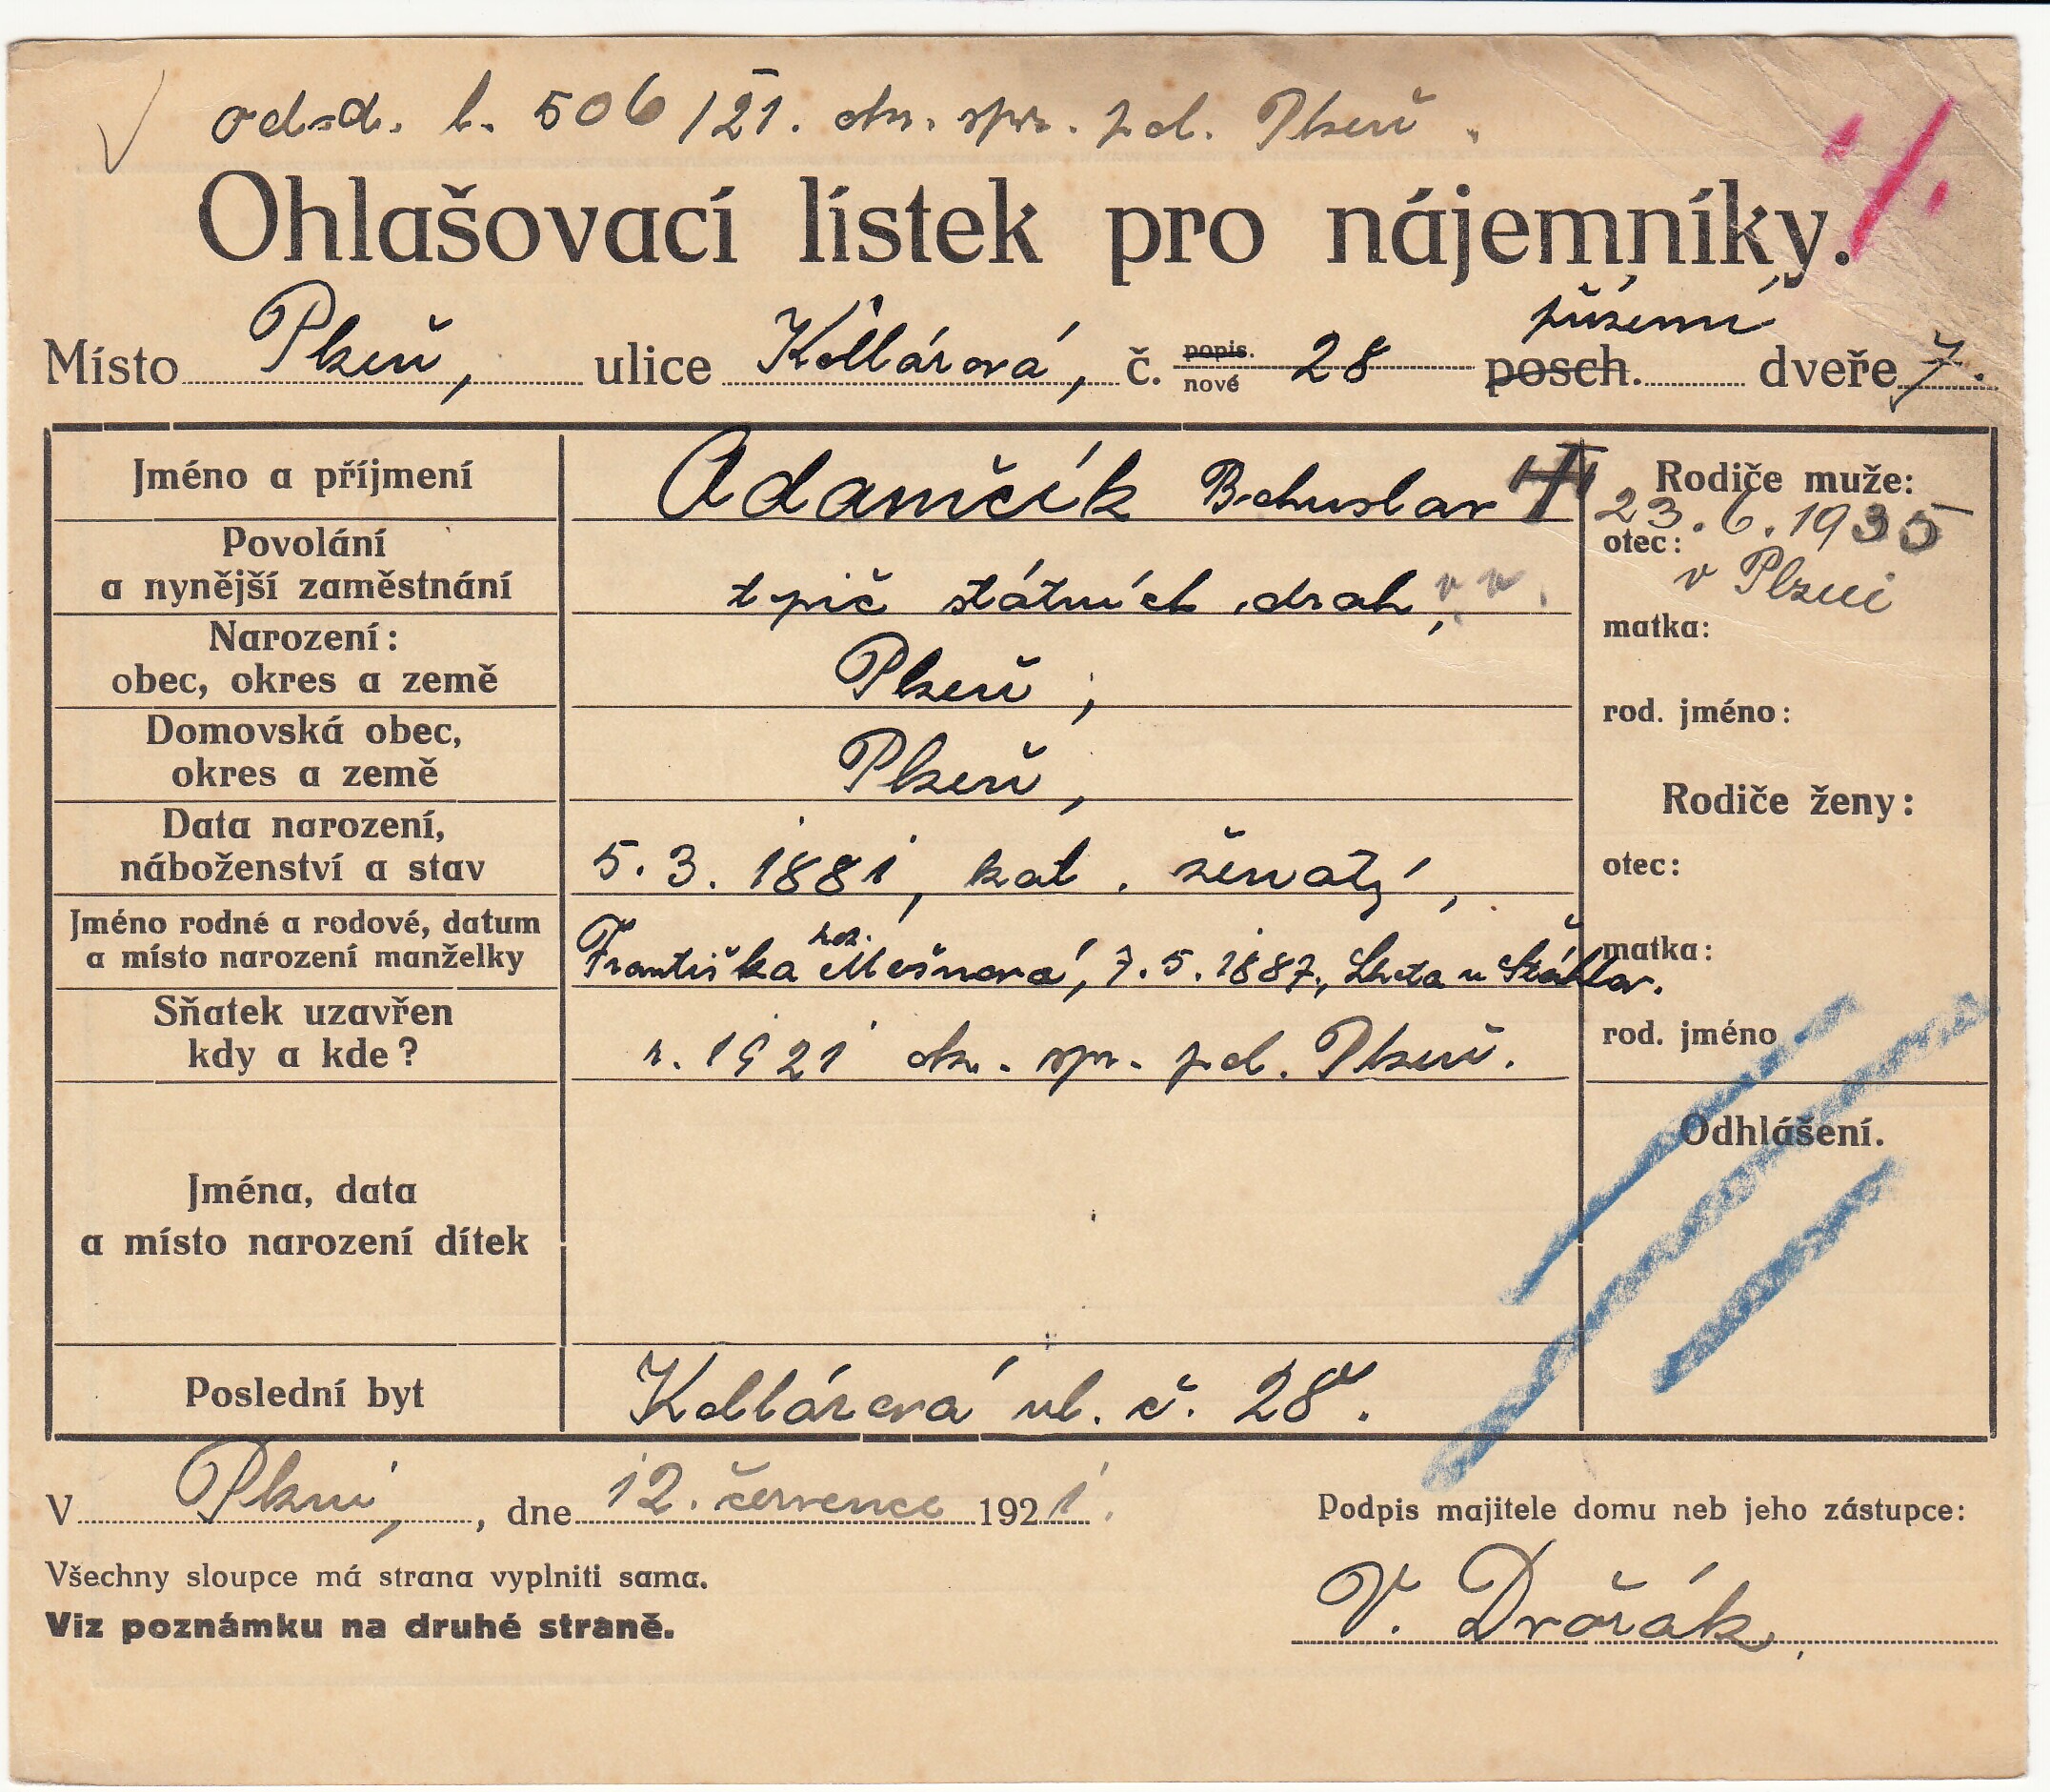 odsd. l. 506/21. okr. spr. pol. Plzeň.
Ohlašovací lístek pro nájemníky.
přízemí
Místo Plzeň, ulice Kollárová, č. popis. nové 28 posch. dveře 7.
Jméno a příjmení Adamčík Bohuslav † Rodiče muže:
23.6.1935
Povolání
a nynější zaměstnání topič státních drah, v. v. otec: v Plzni
Narození: matka:
obec, okres a země Plzeň,
Domovská obec, rod. jméno:
okres a země Plzeň, Rodiče ženy:
Data narození,
náboženství a stav 5. 3. 1881, kat. ženatý, otec:
Jméno rodné a rodové, datum roz. matka:
a místo narození manželky Františka Mešnerová, 7. 5. 1887, Lhota u Šťáhlav.
Sňatek uzavřen rod. jméno
kdy a kde? r. 1921 okr. spr. pol. Plzeň.
Odhlášení.
Jména, data
a místo narození dítek
Poslední byt Kollárova ul. č. 28.
V Plzni, , dne 12. července 1921. Podpis majitele domu neb jeho zástupce:
Všechny sloupce má strana vyplniti sama.
Viz poznámku na druhé straně.
V. Dvořák.